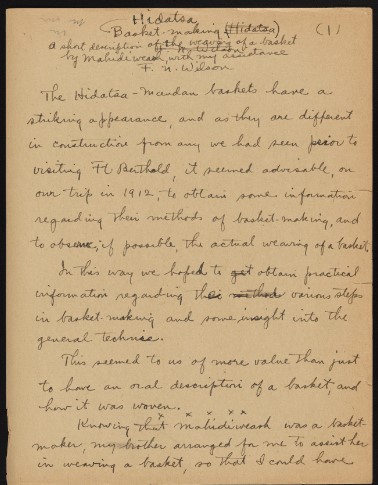 Hidatsa
Basket-making (Hidatsa) (1)
a short description of the weaving of a basket
by Mahidiweash, with my assistance
F. N. Wilson
The Hidatsa-Mandan baskets have a
striking appearance, and as they are different
in construction from any we had seen prior to
visiting Ft Berthold, it seemed advisable, on
our trip in 1912, to obtain some information
regarding their methods of basket-making, and
to observe, if possible, the actual weaving of a basket.
In this way we hoped to get obtain practical
information regarding the various steps
in basket-making and some insight into the
general technic.
This seemed to us of more value than just
to have an oral description of a basket, and
how it was woven.
Knowing that Mahidiweash was a basket-
maker, my brother arranged for me to assist her
in weaving a basket, so that I could have